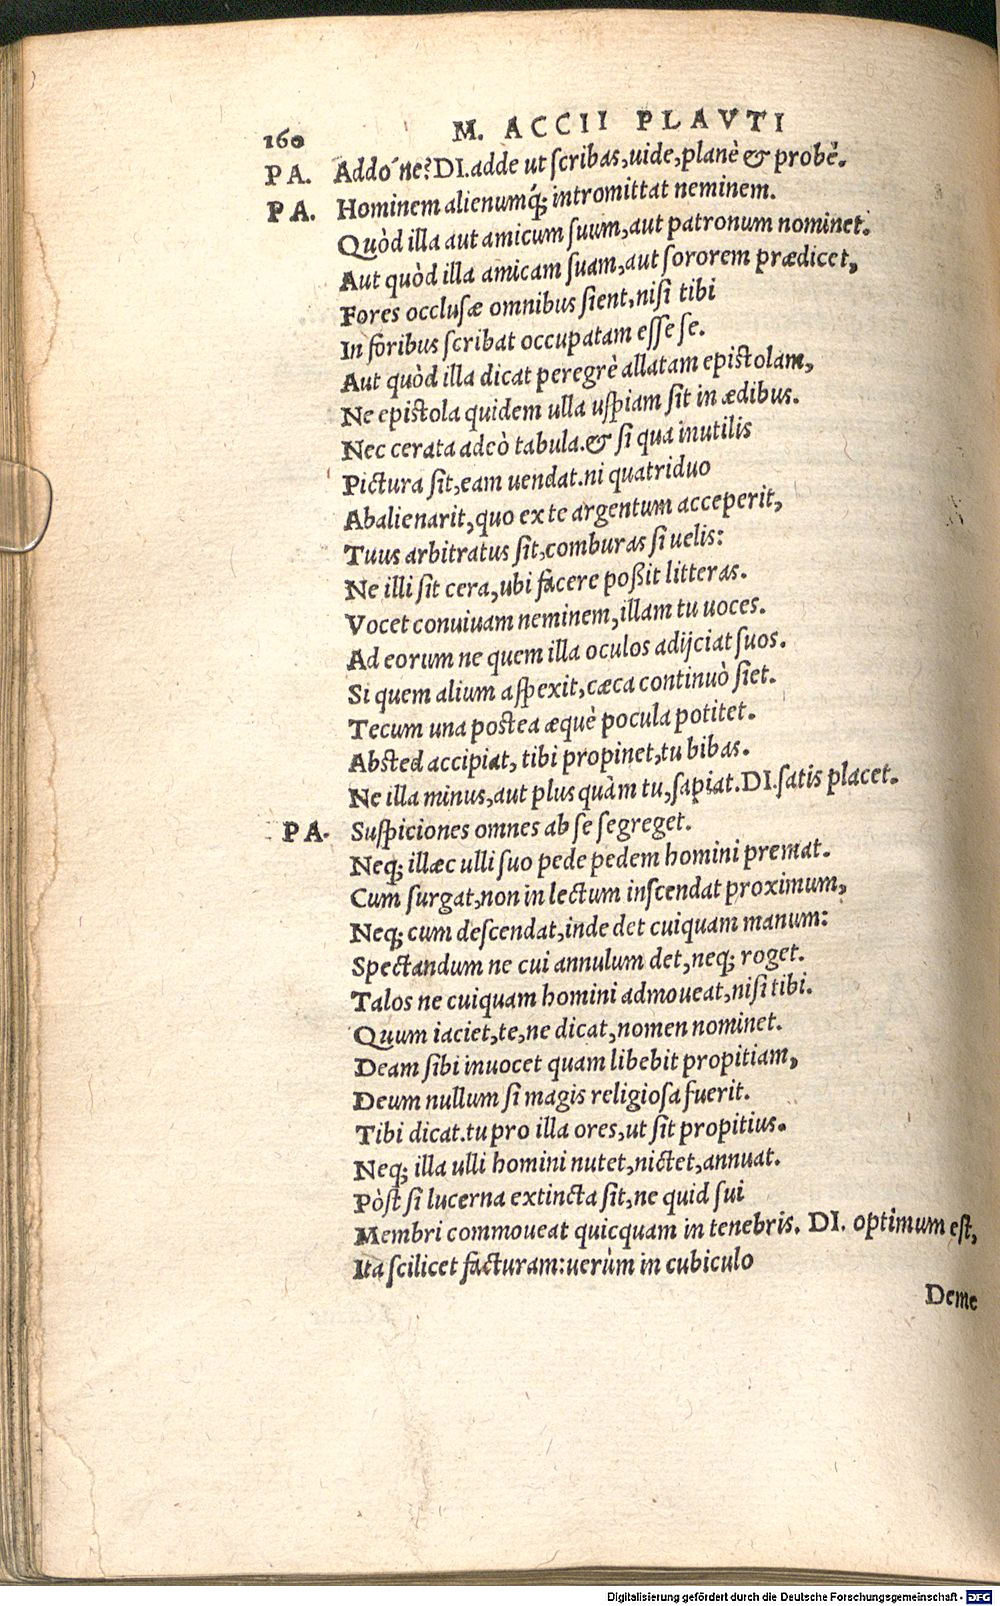 160 M. ACCII PLAVTI
PA. Addo´ne? DI. adde ut ſcribas, uide, planè & probè.
PA. Hominem alienumq́; intromittat neminem.
Quòd illa aut amicum ſuum, aut patronum nominet.
Aut quòd illa amicam ſuam, aut ſororem prædicet,
Fores occluſæ omnibus ſient, niſi tibi
In foribus ſcribat occupatam eſſe ſe.
Aut quòd illa dicat peregrè allatam epiſtolam,
Ne epiſtola quidem ulla uſpiam ſit in ædibus.
Nec cerata adeò tabula. & ſi qua inutilis
Pictura ſit, eam uendat. ni quatriduo
Abalienarit, quo ex te argentum acceperit,
Tuus arbitratus ſit, comburas ſi uelis:
Ne illi ſit cera, ubi facere poßit litteras.
Vocet conuiuam neminem, illam tu uoces.
Ad eorum ne quem illa oculos adijciat ſuos.
Si quem alium aſpexit, cæca continuò ſiet.
Tecum una poſtea æquè pocula potitet.
Abſted accipiat, tibi propinet, tu bibas.
Ne illa minus, aut plus quàm tu, ſapiat. DI. ſatis placet.
PA. Suſpiciones omnes ab ſe ſegreget.
Neq; illæc ulli ſuo pede pedem homini premat.
Cum ſurgat, non in lectum inſcendat proximum,
Neq; cum deſcendat, inde det cuiquam manum:
Spectandum ne cui annulum det, neq; roget.
Talos ne cuiquam homini admoueat, niſi tibi.
Quum iaciet, te, ne dicat, nomen nominet.
Deam ſibi inuocet quam libebit propitiam,
Deum nullum ſi magis religioſa fuerit.
Tibi dicat. tu pro illa ores, ut ſit propitius.
Neq; illa ulli homini nutet, nictet, annuat.
Pòſt ſi lucerna extincta ſit, ne quid ſui
Membri commoueat quicquam in tenebris. DI. optimum eſt,
Ita ſcilicet facturam: uerùm in cubiculo
Deme
Digitalisierung gefördert durch die Deutsche Forschungsgemeinschaft - DFG